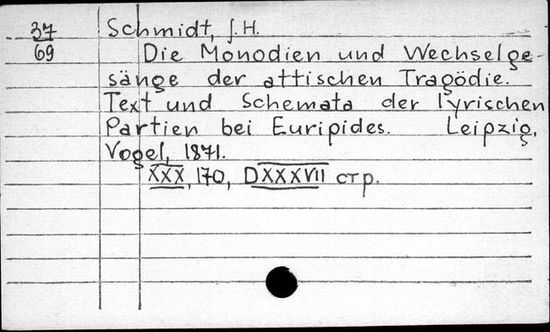 37
69
Schmidt, J. H.
Die Monodien und Wechselge-
sänge der attischen Tragödie.
Text und Schemata der lyrischen
Partien bei Euripides. Leipzig,
Vogel, 1871.
XXX, 170, DXXXVII стр.